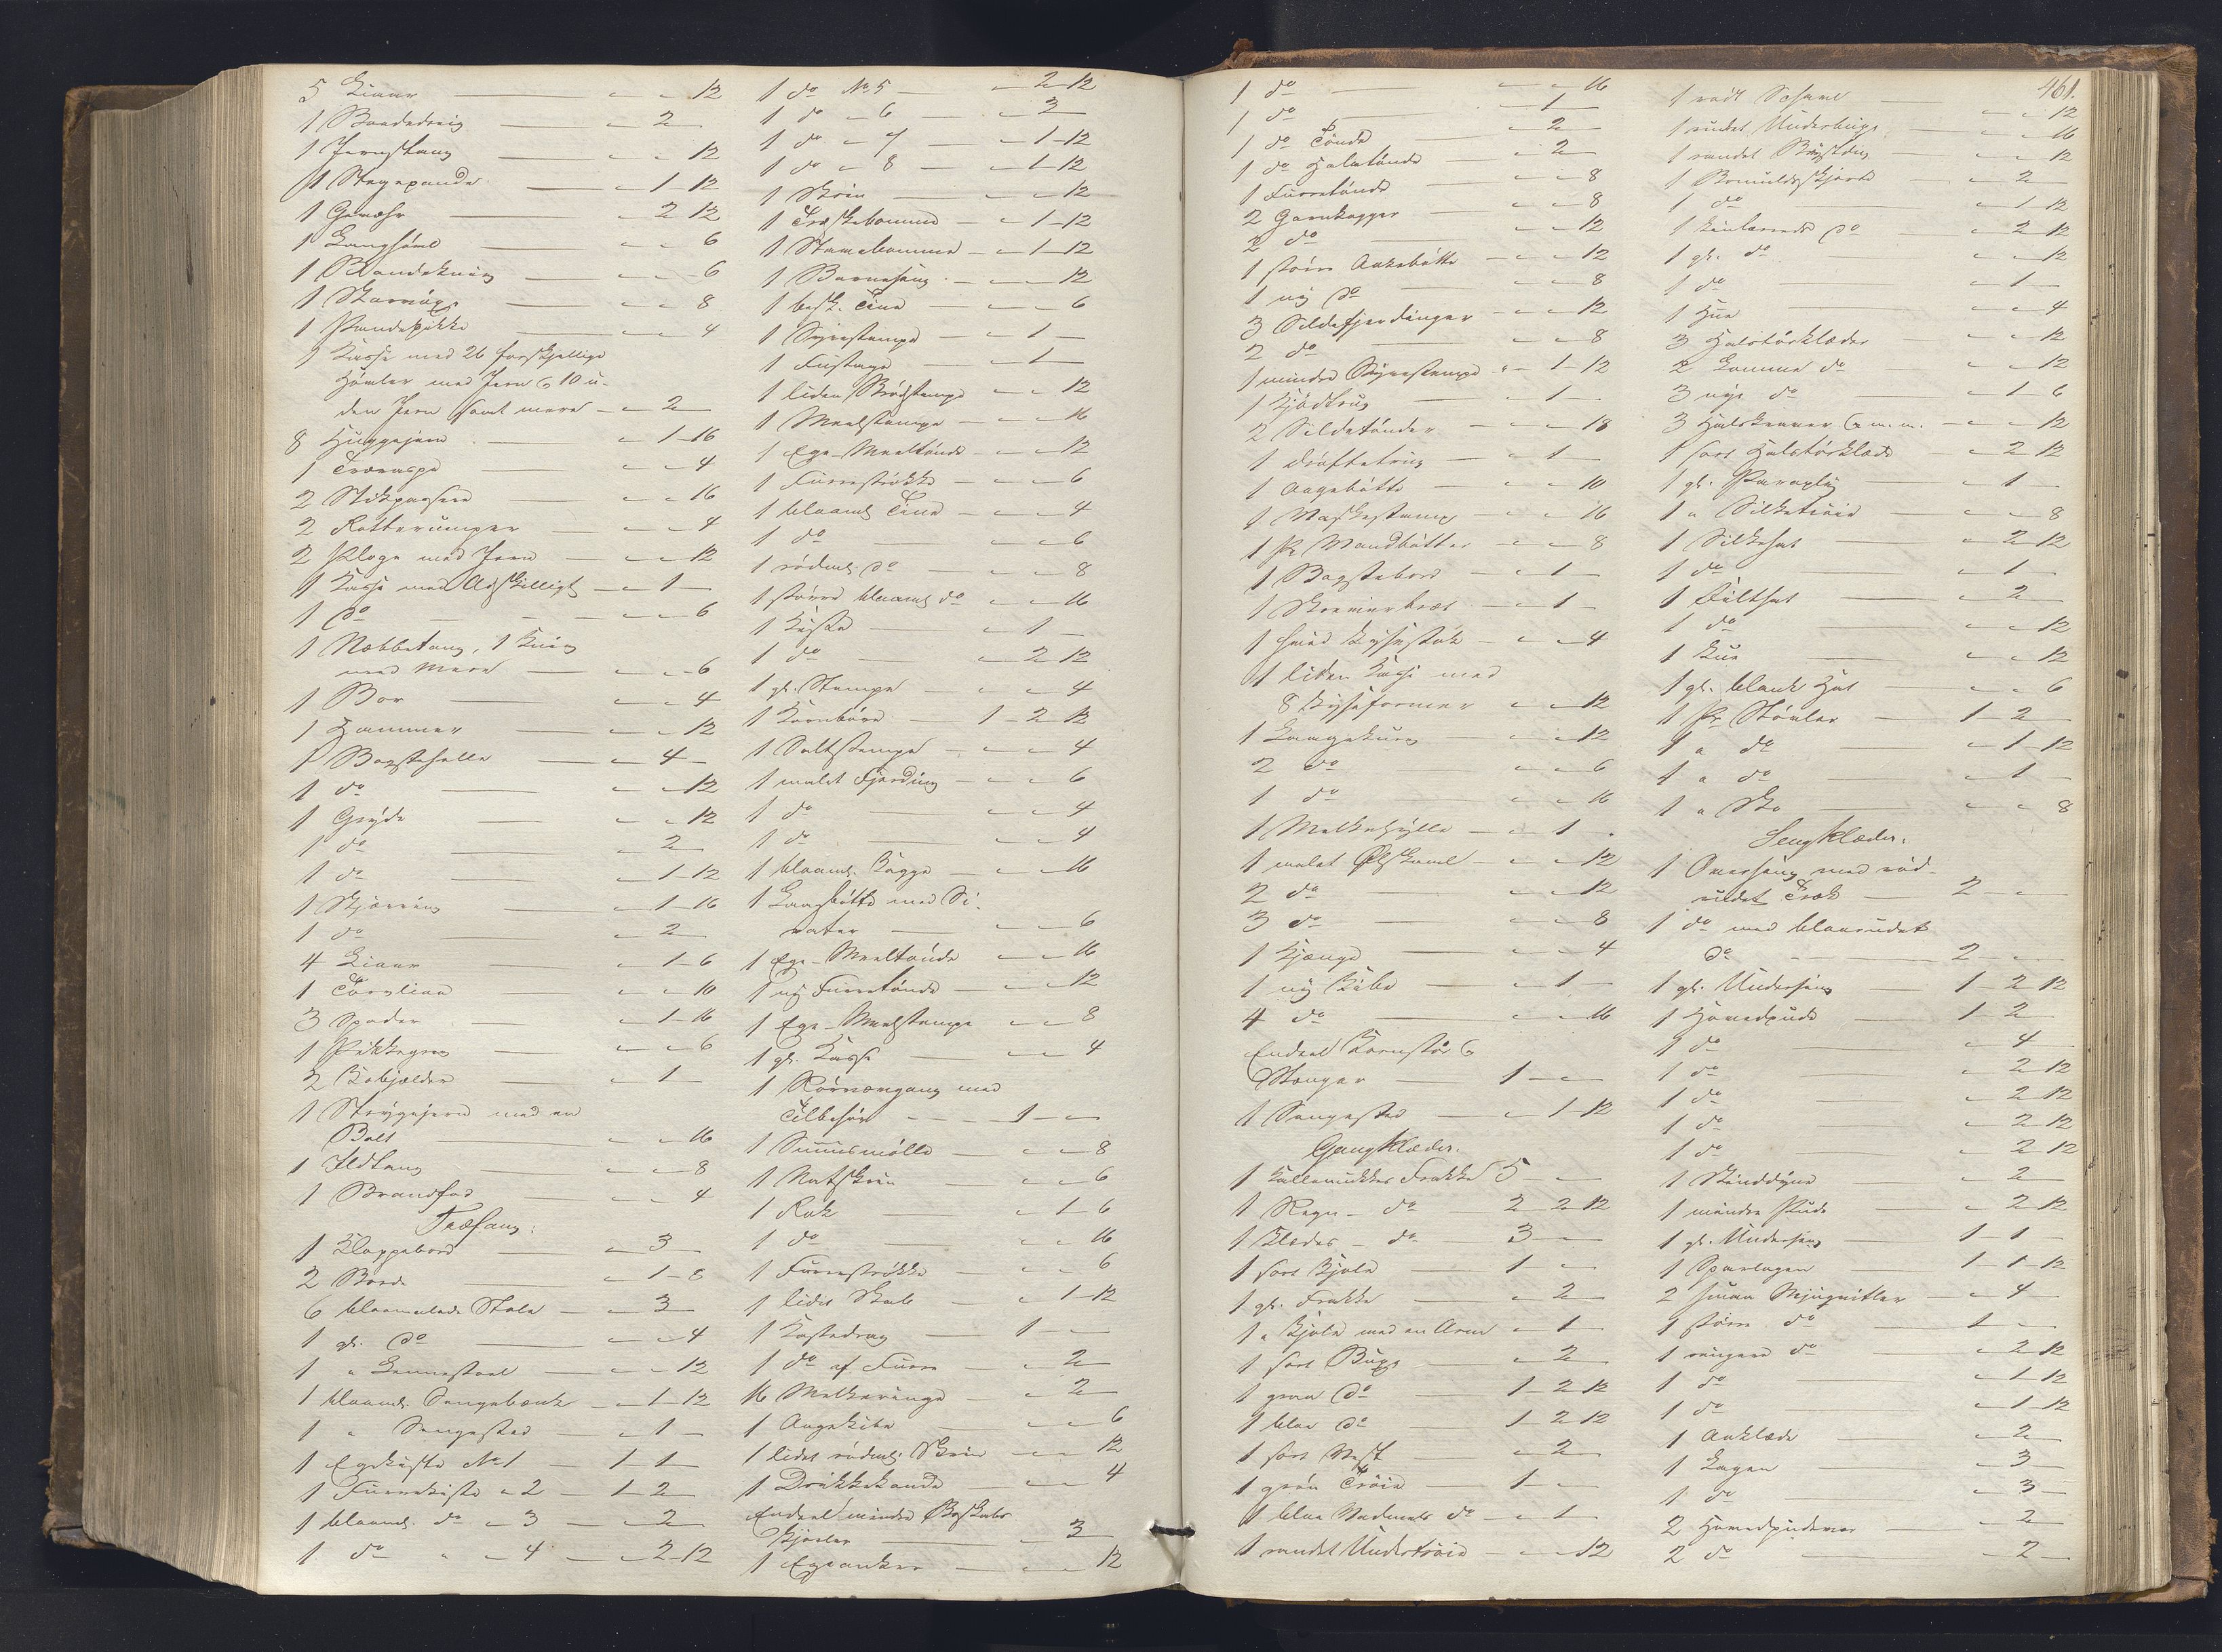 5 Liaar — " " 12
1 Baadedræg — " 2 "
1 Jernstang — " " 12
1 Stegepande — " 1 12
1 Gevæhr — " 2 12
1 Langhövl — " " 6
1 Baandekniv — " " 6
1 Skarøxe — " " 8
1 — " " 4
1 Kasse med 26 forskjellige
Høvler med Jern & 10 u-
den Jern samt mere — " 2 "
8 Huggejern — " 1 16
1 — " " 4
2 Stikpassere — " " 16
2 Rotterumper — " " 4
2 Ploge med Jern — " " 12
1 Kasse med Adskilligt — " 1 "
1 do — " " 6
1 Næbbetang, 1 Kniv
med Mere — " " 6
1 Bor — " " 4
1 Hammer — " " 12
1 Bagstehelle — " 4 "
1 do — " " 12
1 Gryde — " " 12
1 do — " 2 "
1 do — " 1 12
1 Skjæreing — " 1 16
1 do — " 2 "
4 Liaar — " 1 6
1 — " " 10
3 Spader — " 1 16
1 — " " 6
2 Kobjælder — " 1 "
1 Strygejern med en
Bolt — " " 16
1 Ildtang — " " 8
1 Brandfad — " " 4
Træfang:
1 Klappebord — " 3 "
2 Borde — " 1 8
6 blaamalede Stole — " 3 "
1 gl. do — " " 4
1 " Lænnestoel — " " 12
1 blaaml. Sengebænk — " 1 12
1 " Sengested — " 1 "
1 Egekiste No 1 — 1 1 "
1 Furrekiste " 2 — 1 2 "
1 blaaml. do " 3 — " 2 "
1 do " " 4 — " 2 12
1 do No 5 — " 2 12
1 do " 6 — " 3 "
1 do " 7 — " 1 12
1 do " 8 — " 1 12
1 Skrin — " " 12
1 — " 1 12
1 — " 1 12
1 Barneseng — " " 12
1 besk. Tine — " " 6
1 Syrestampe — " 1 "
1 Fustage — " 1 "
1 liden Brødstampe — " " 12
1 Meelstampe — " " 16
1 Ege-Meeltønde — " " 12
1 Furreströkke — " " 6
1 blaaml. Tine — " " 4
1 do — " " 6
1 rødml. do — " " 8
1 større blaaml. do — " " 16
1 Kiste — " 1 "
1 do — " 2 12
1 gl. Stampe — " " 4
1 Kornbøre — 1 2 12
1 Saltstampe — " " 4
1 malet Fjerding — " " 6
1 do — " " 4
1 do — " " 4
1 blaaml. Kagge — " " 16
1 Langbøtte med Si-
rater — " " 6
1 Ege-Meeltønde — " " 16
1 ny Furretønde — " " 12
1 Ege-Meelstampe — " " 8
1 gl. Kasse — " " 4
1 med
Tilbehør — 1 " "
1 Sennepsmølle — " " 8
1 Matskrin — " " 6
1 Rok — " 1 6
1 do — " " 16
1 Furreströkke — " " 6
1 lidet Skab — " 1 12
1 Kastedrag — 1 " "
1 do af Furre — " 2 "
16 Melkeringe — " 2 "
1 Augekibe — " " 6
1 lidet rødml. Skrin — " " 12
1 Drikkekande — " " 4
Endeel mindre Boskabs
kjørler — " 3 "
1 Egeanker — " " 12
461.
1 do — " " 16
1 do — " 1 "
1 do Tønde — " 2 "
1 do Halvtønde — " 2 "
1 Furretønde — " " 8
2 Garnkagger — " " 8
2 do — " " 12
1 større Ankebøtte — " " 12
1 ny do — " " 8
3 Sildefjerdinger — " " 12
2 do — " " 8
1 mindre Syrestampe " 1 12
1 Kjødtrug — " 1 "
2 Sildetønder — " " 18
1 Drøftetrug — " 1 "
1 Augebøtte — " " 10
1 Vaskestamp — " " 16
1 Pr Vandbøtter — " " 8
1 Bagstebord — " 1 "
1 — " 1 "
1 — " " 4
1 liden Kasse med
8 Lyseformer — " " 12
1 Laugekurv — " " 12
2 do — " " 6
1 do — " " 16
1 Melkehylle — " 1 "
1 malet Ølskaal — " " 12
2 do — " " 12
3 do — " " 8
1 Kjænge — " " 4
1 ny Kibe — " 1 "
4 do — " " 16
Endeel Kornstør &
Stænger — 1 " "
1 Sengested — " 1 12
Gangklæder.
1 Kallemukkes Frakke 5 " "
1 Regn- do — 2 2 12
1 Klædes- do — 3 " "
1 sort Kjole — 1 " "
1 gl. Frakke — " 2 "
1 " Kjole med en Arm " 1 "
1 sort Buxe — " 2 "
1 graa do — 1 2 12
1 blaa do — 1 2 12
1 sort Vest — " 2 "
1 grøn Trøie — 1 " "
1 blaa Vadmels do — " 1 "
1 randet Undertrøie — " " 12
1 rødt Schavl — " " 12
1 rudet Underbuxe — " " 16
1 randet Brystdug — " " 12
1 Bomuldsskjorte — " 2 "
1 do — " 1 12
1 Linlærreds do — " 2 12
1 gl. do — " " 12
1 do — " 1 "
1 Hue — " " 4
3 Halstørklæder — " " 12
2 Lomme do — " " 12
3 nye do — " 1 6
3 Halskraver & m. m. — " " 12
1 sort Halstørklæde — " 2 12
1 gl. Paraply — " 1 "
1 " Silketrøie — " " 8
1 Silkehat — " 2 12
1 do — " 1 "
1 Filthat — " 2 "
1 do — " " 12
1 Lue — " " 12
1 gl. blank Hat — " " 6
1 Pr Støvler — 1 2 "
1 " do — " 1 12
1 " do — " 1 "
1 " Sko — " " 8
Sengklæder.
1 Overseng med rød-
rudet Træk — 2 " "
1 do med blaarudet
do — 2 " "
1 gl. Underseng — 1 2 12
1 Hovedpude — 1 2 "
1 do — " 4 "
1 do — " 2 12
1 do — " 2 12
1 do — " 2 12
1 do — " 2 12
1 Skinddyne — " 2 "
1 mindre Pude — " 2 12
1 gl. Underseng — 1 1 "
1 Sparlagen — 1 1 12
2 smaa — " 4 "
1 større do — 1 " "
1 ringere do — " 2 12
1 do — " 1 12
1 do — " 1 12
1 Aaklæde — " 2 "
1 Lagen — " 3 "
1 do — " 3 "
2 Hovedpudevar — " 2 "
2 do — " 2 "